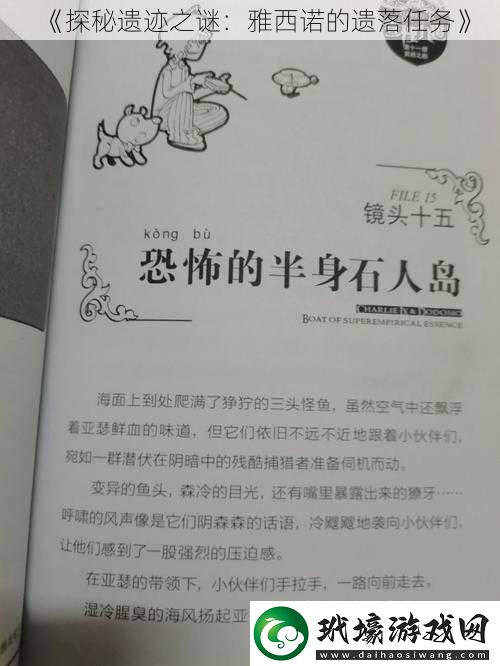 《探秘遗迹之谜：雅西诺的遗落任务》
FILE 15
镜头十五
kǒng bù
恐怖的半身石人岛
CHARLIE IX & DODOMO
BOAT OF SUPEREMPIRICAL ESSENCE
海面上到处爬满了狰狞的三头怪鱼，虽然空气中还飘浮
着亚瑟鲜血的味道，但它们依旧不远不近地跟着小伙伴们，
宛如一群潜伏在阴暗中的残酷捕猎者准备伺机而动。
变异的鱼头，森冷的目光，还有嘴里暴露出来的獠牙……
呼啸的风声像是它们阴森森的话语，冷飕飕地袭向小伙伴们，
让他们感到了一股强烈的压迫感。
在亚瑟的带领下，小伙伴们手拉手，一路向前走去。
湿冷腥臭的海风扬起亚
玳壕游戏网
www.daihaosiwang.com